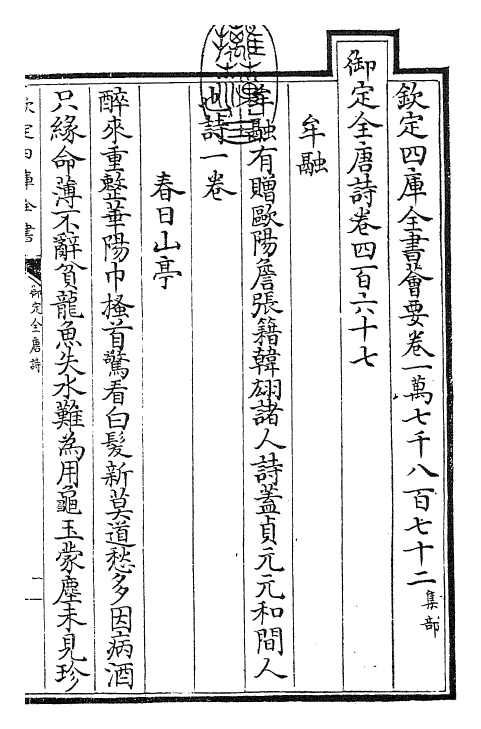 欽定四庫全書薈要卷一萬七千八百七十二集部
御定全唐詩卷四百六十七
牟融
牟融有贈歐陽詹張籍韓翃諸人詩蓋貞元元和間人
也詩一卷
春日山亭
醉來重整華陽巾搔首驚看白髮新莫道愁多因病酒
只緣命薄不辭貧龍魚失水難為用龜玉蒙塵未見珍
欽定四庫全書
御定全唐詩
一